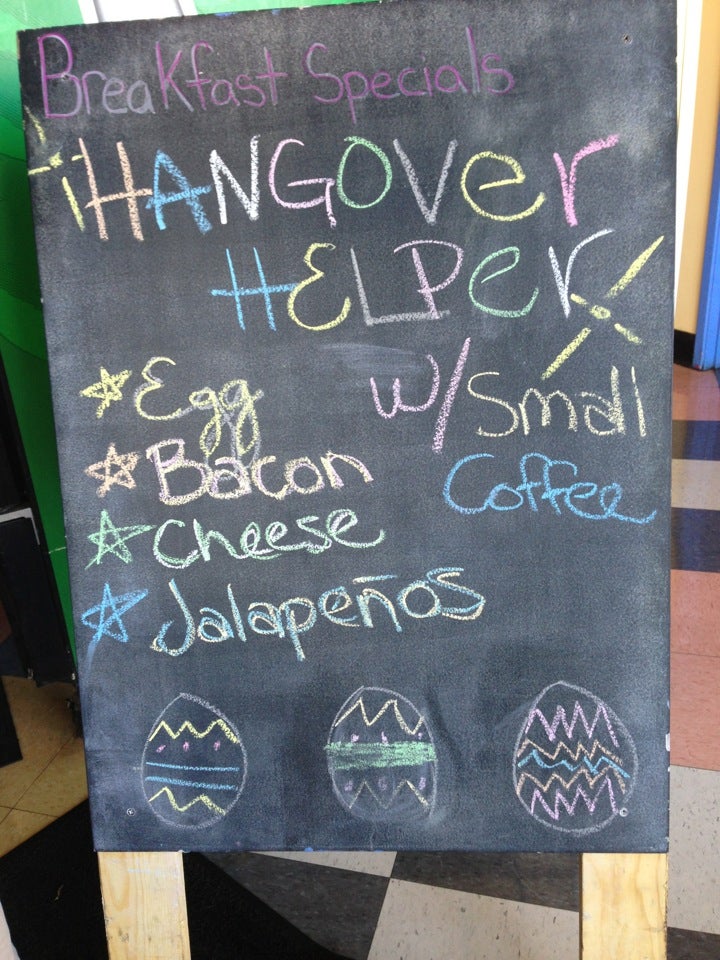 Breakfast Specials
¡HANGOVer
HELPer!
* Egg w/ Small
* Bacon Coffee
* Cheese
* Jalapeños